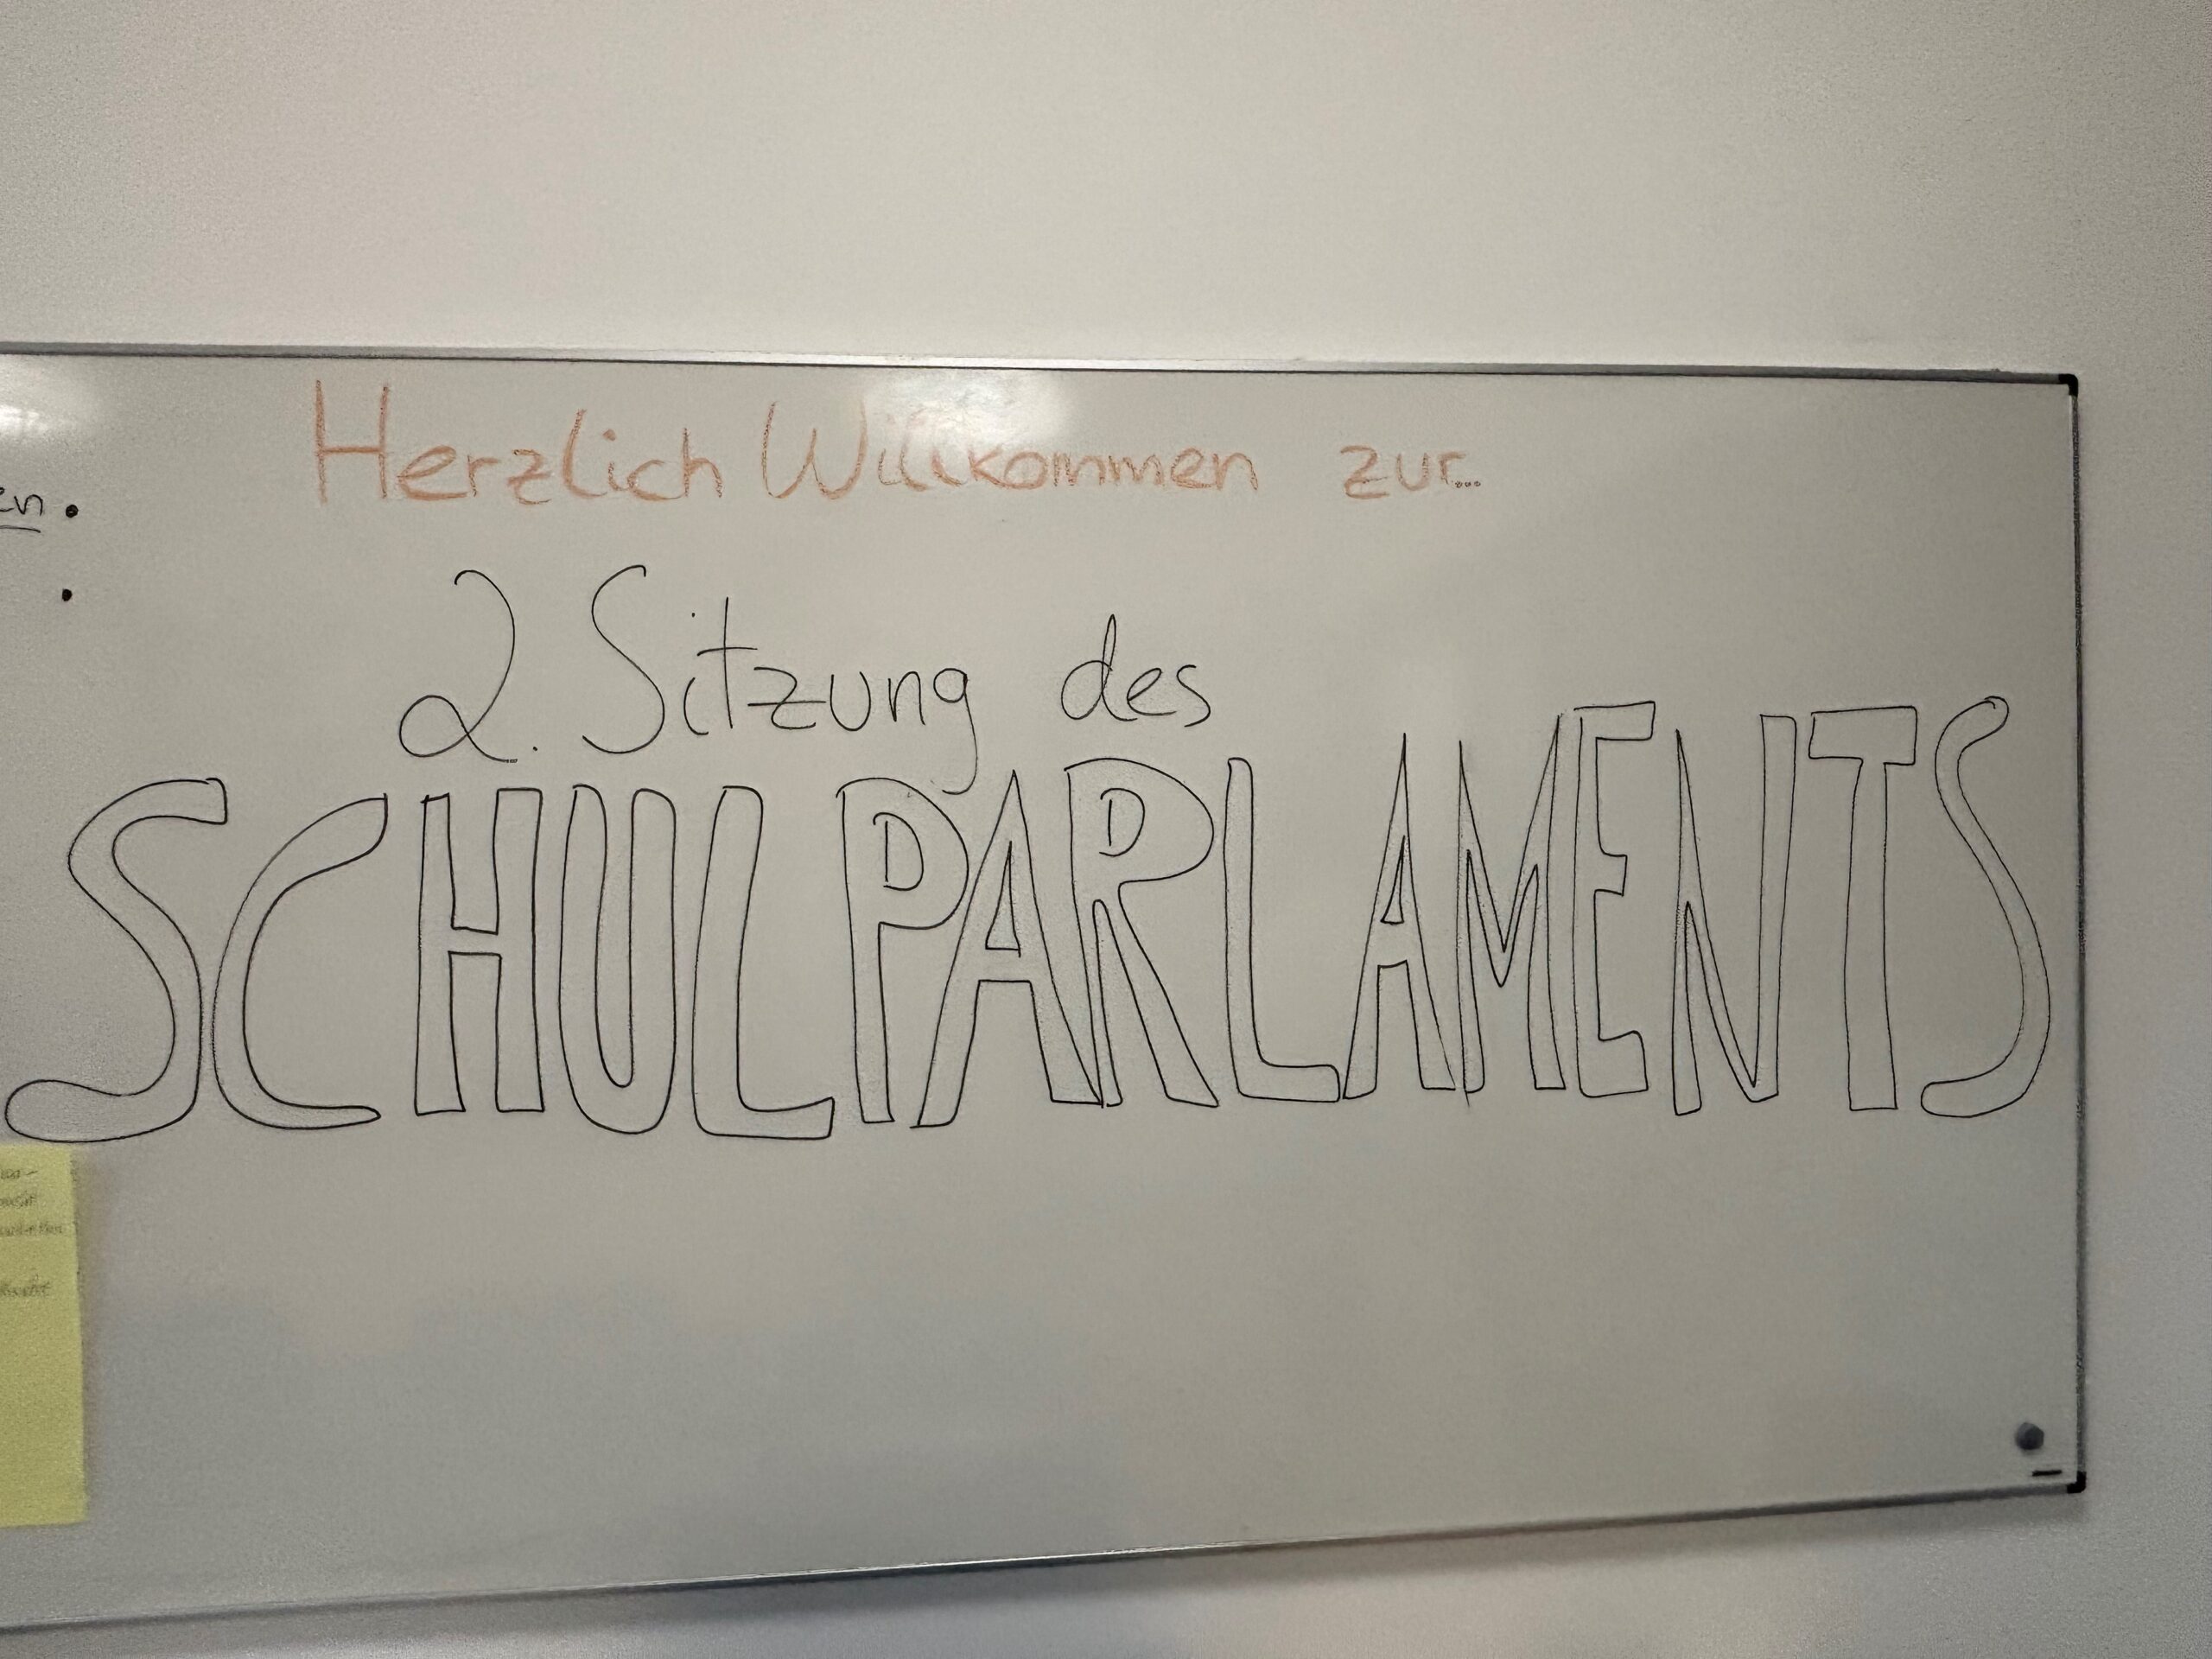 Herzlich Willkommen zur...
2. Sitzung des
SCHULPARLAMENTS